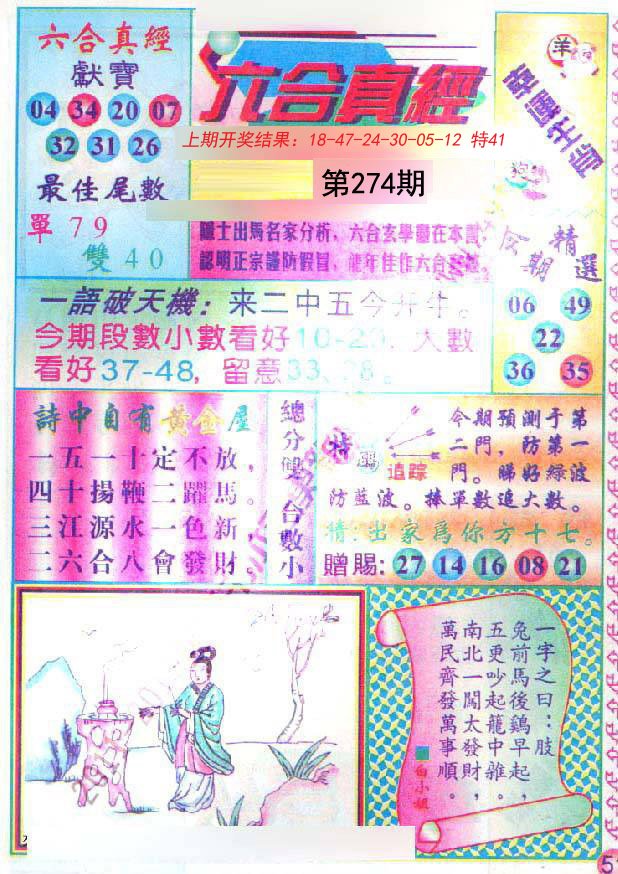 六合真經
獻寶
04 34 20 07
32 31 26
最佳尾數
單79
雙40
六合真經
上期开奖结果：18-47-24-30-05-12 特41
第274期
士出馬名家分析，六合玄學靈在本
認明正宗謹防假冒，龍年佳作六合
羊
期精選
06 49
22
36 35
一語破天機：来二中五今开牛。
今期段數小數看好10-20、大數
看好37-48，留意33、
詩中自有黃金屋
一五一十定不放，
四十揚鞭二躍馬。
三江源水一色新，
二六合八會發財。
總分雙 合數小
特碼
追踪
今期預測于第
二門，防第一
門。睇好綠波
防藍波。捧單數追大數。
猜：出家為你方十七。
贈賜：27 14 16 08 21
一字之曰：肢
兔前馬後鷄早起，
五更吵起籠中雜。
南北一闖太發財，
萬民齊發萬事順。
白小姐